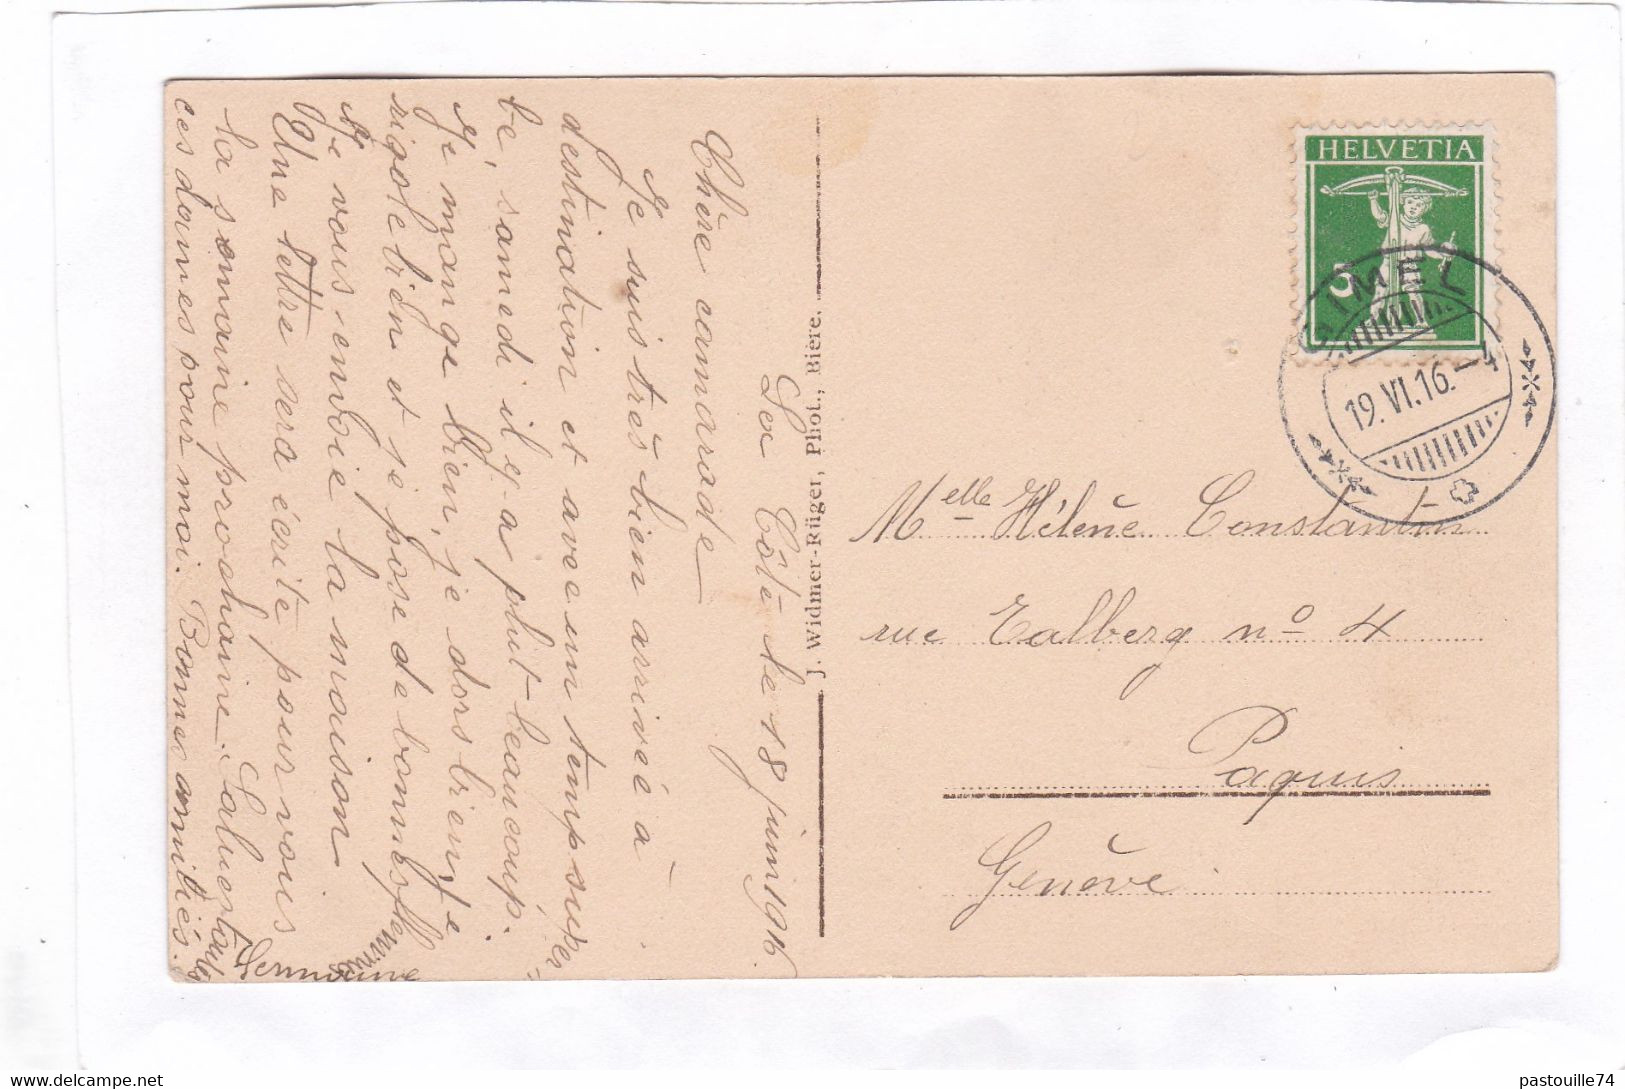 La Côte le 18 juin 1916
Chère camarade
Je suis très bien arrivée à
destination et avec un temp super-
be, samedi il y a plut beaucoup.
Je mange bien, je dors bien, je
rigole bien et je pose de bonnes
Je vous envoie la moison
Une lettre sera écrite pour vous
la semaine prochaine. Salues toutes
ces dames pour moi. Bonnes amitiés.
Germaine
J. Widmer-Rüger, Phot., Bière.
HELVETIA
5
GIMEL
19.VI.16.
Melle Hélène Constantin
rue Talberg no 4
Paquis
Genève
pastouille74